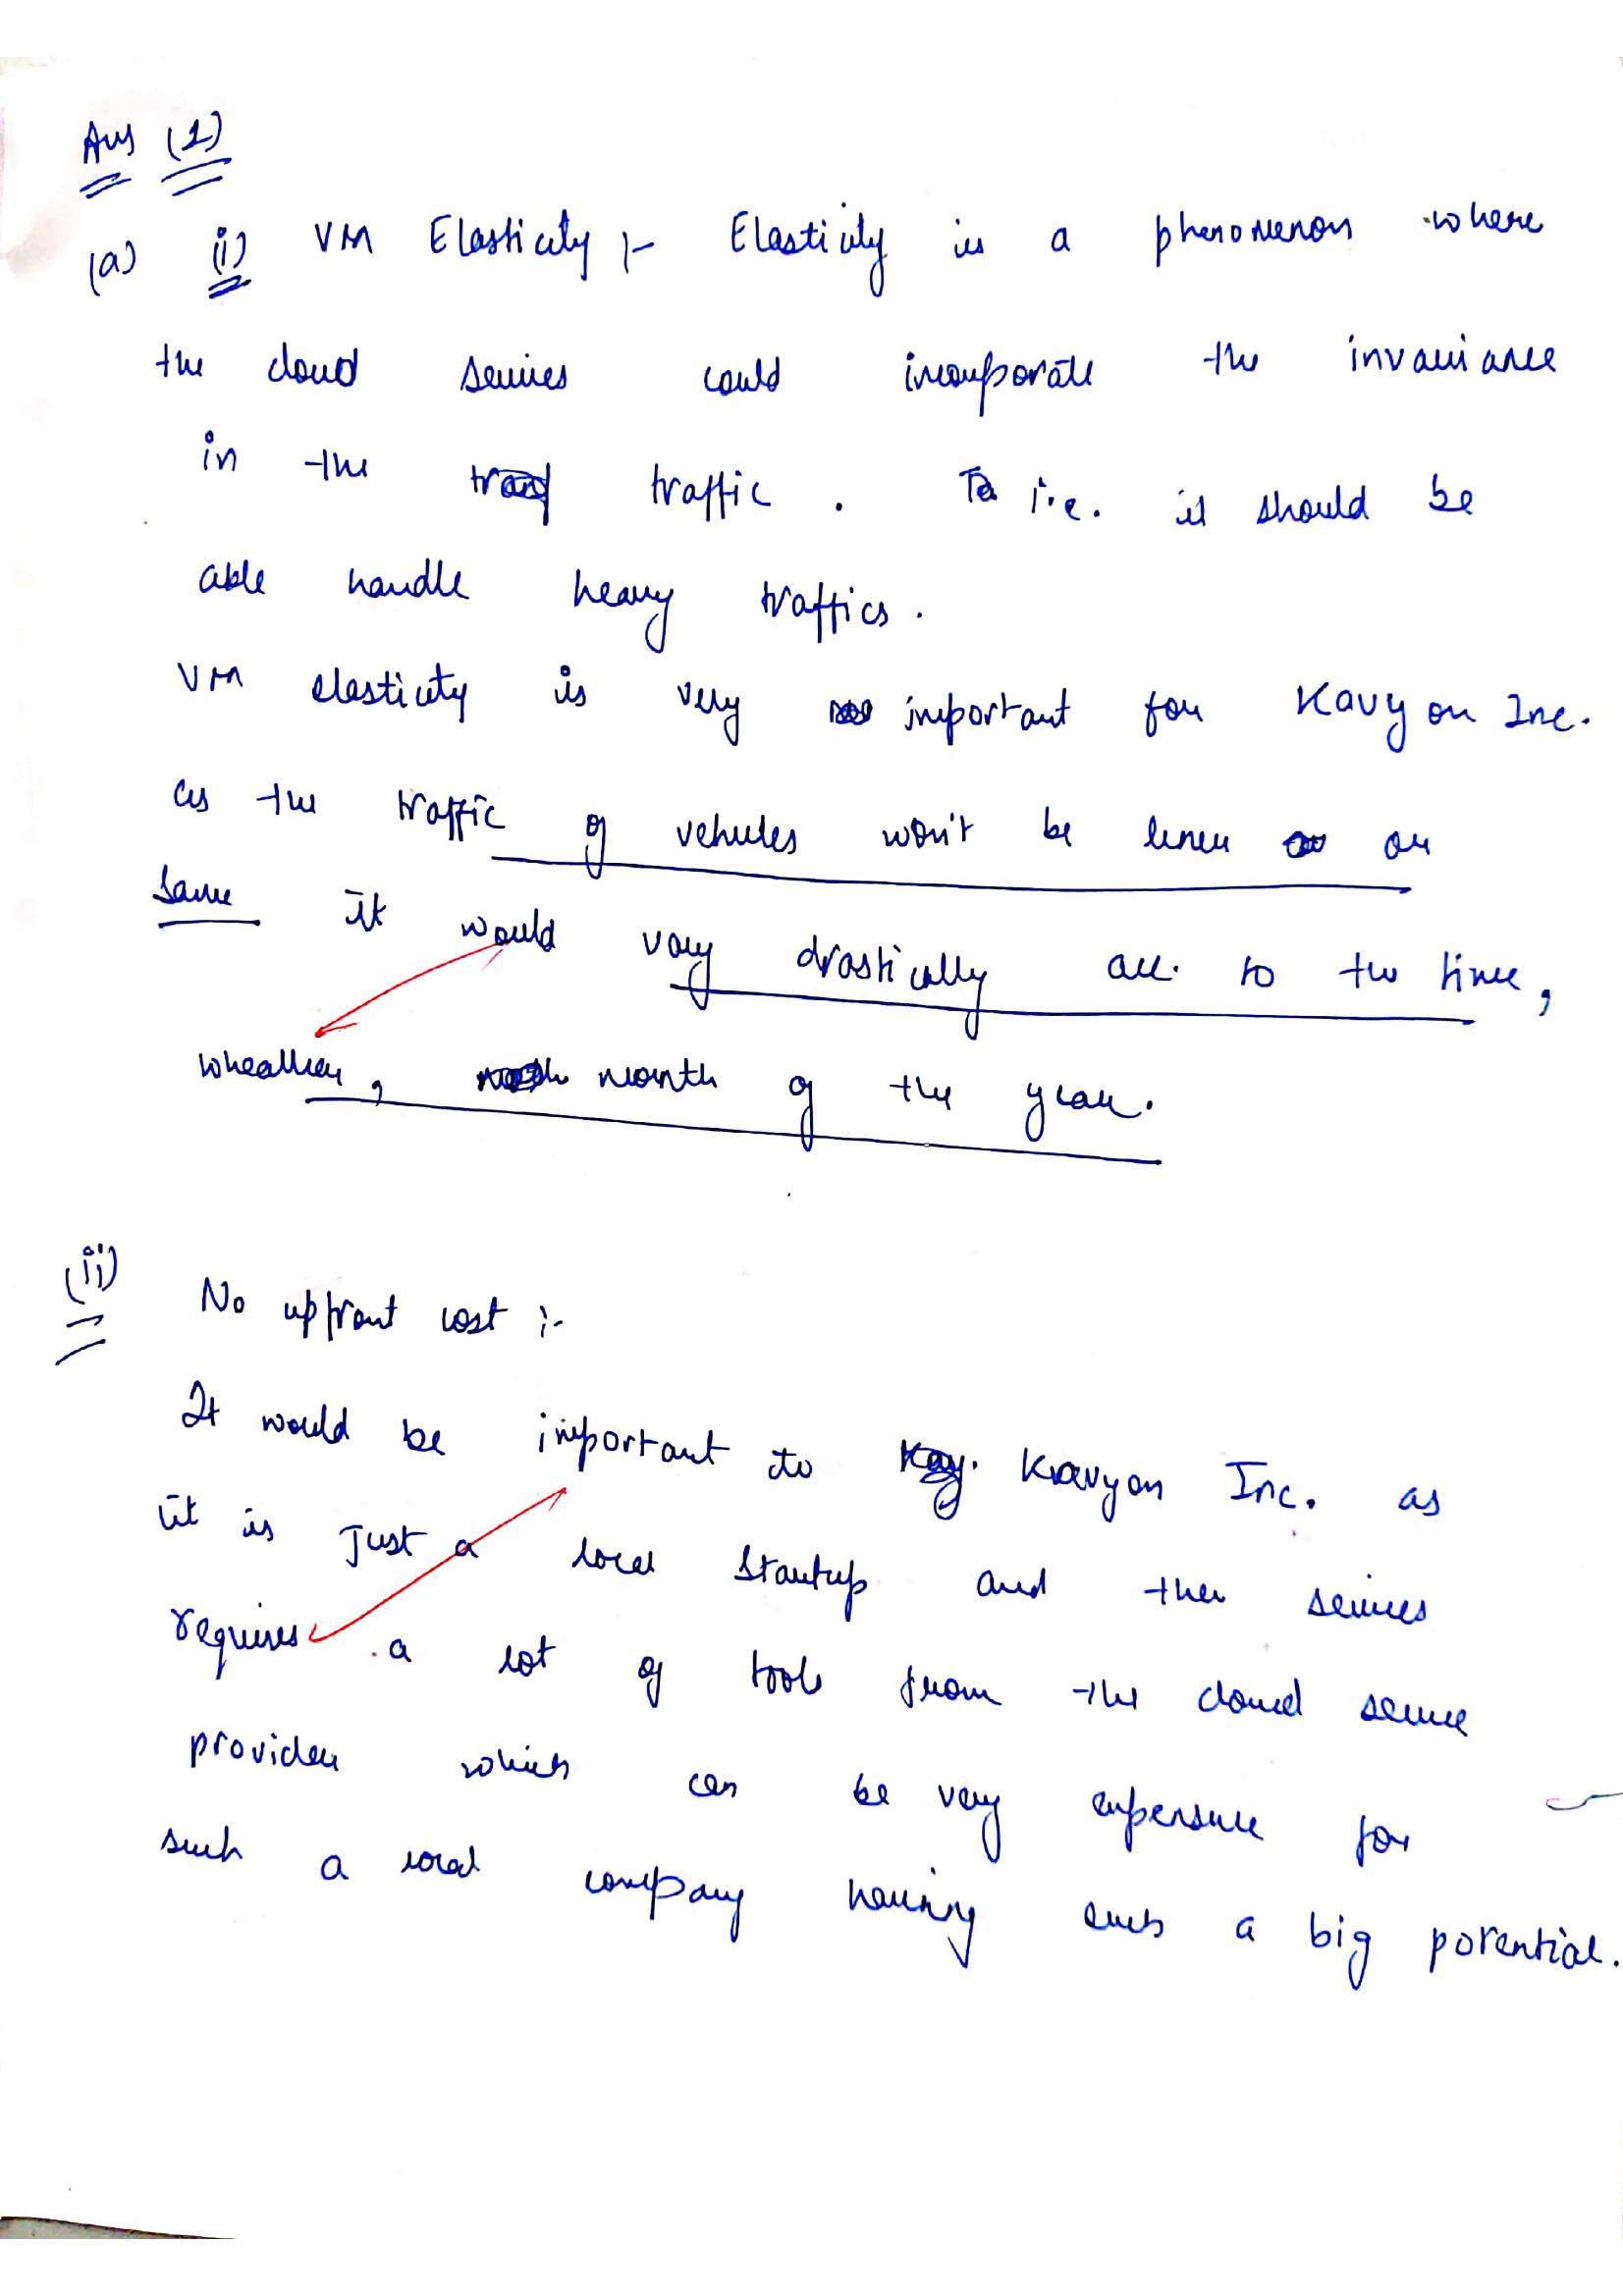 Ans (1)
(a) (i) VM Elasticity :- Elasticity is a phenomenon where
the cloud services could incorporate the invariance
in the traffic . i.e. it should be
able handle heavy traffics .
VM elasticity is very important for Kavyon Inc.
as the traffic of vehicles won't be linear or
same it would vary drastically acc. to the time ,
wheather , month of the year.
(ii) No upfront cost :-
It would be important to Kavyon Inc. as
it is Just a local startup and their services
requires a lot of tools from the cloud service
provider which can be very expensive for
such a local company having such a big potential.